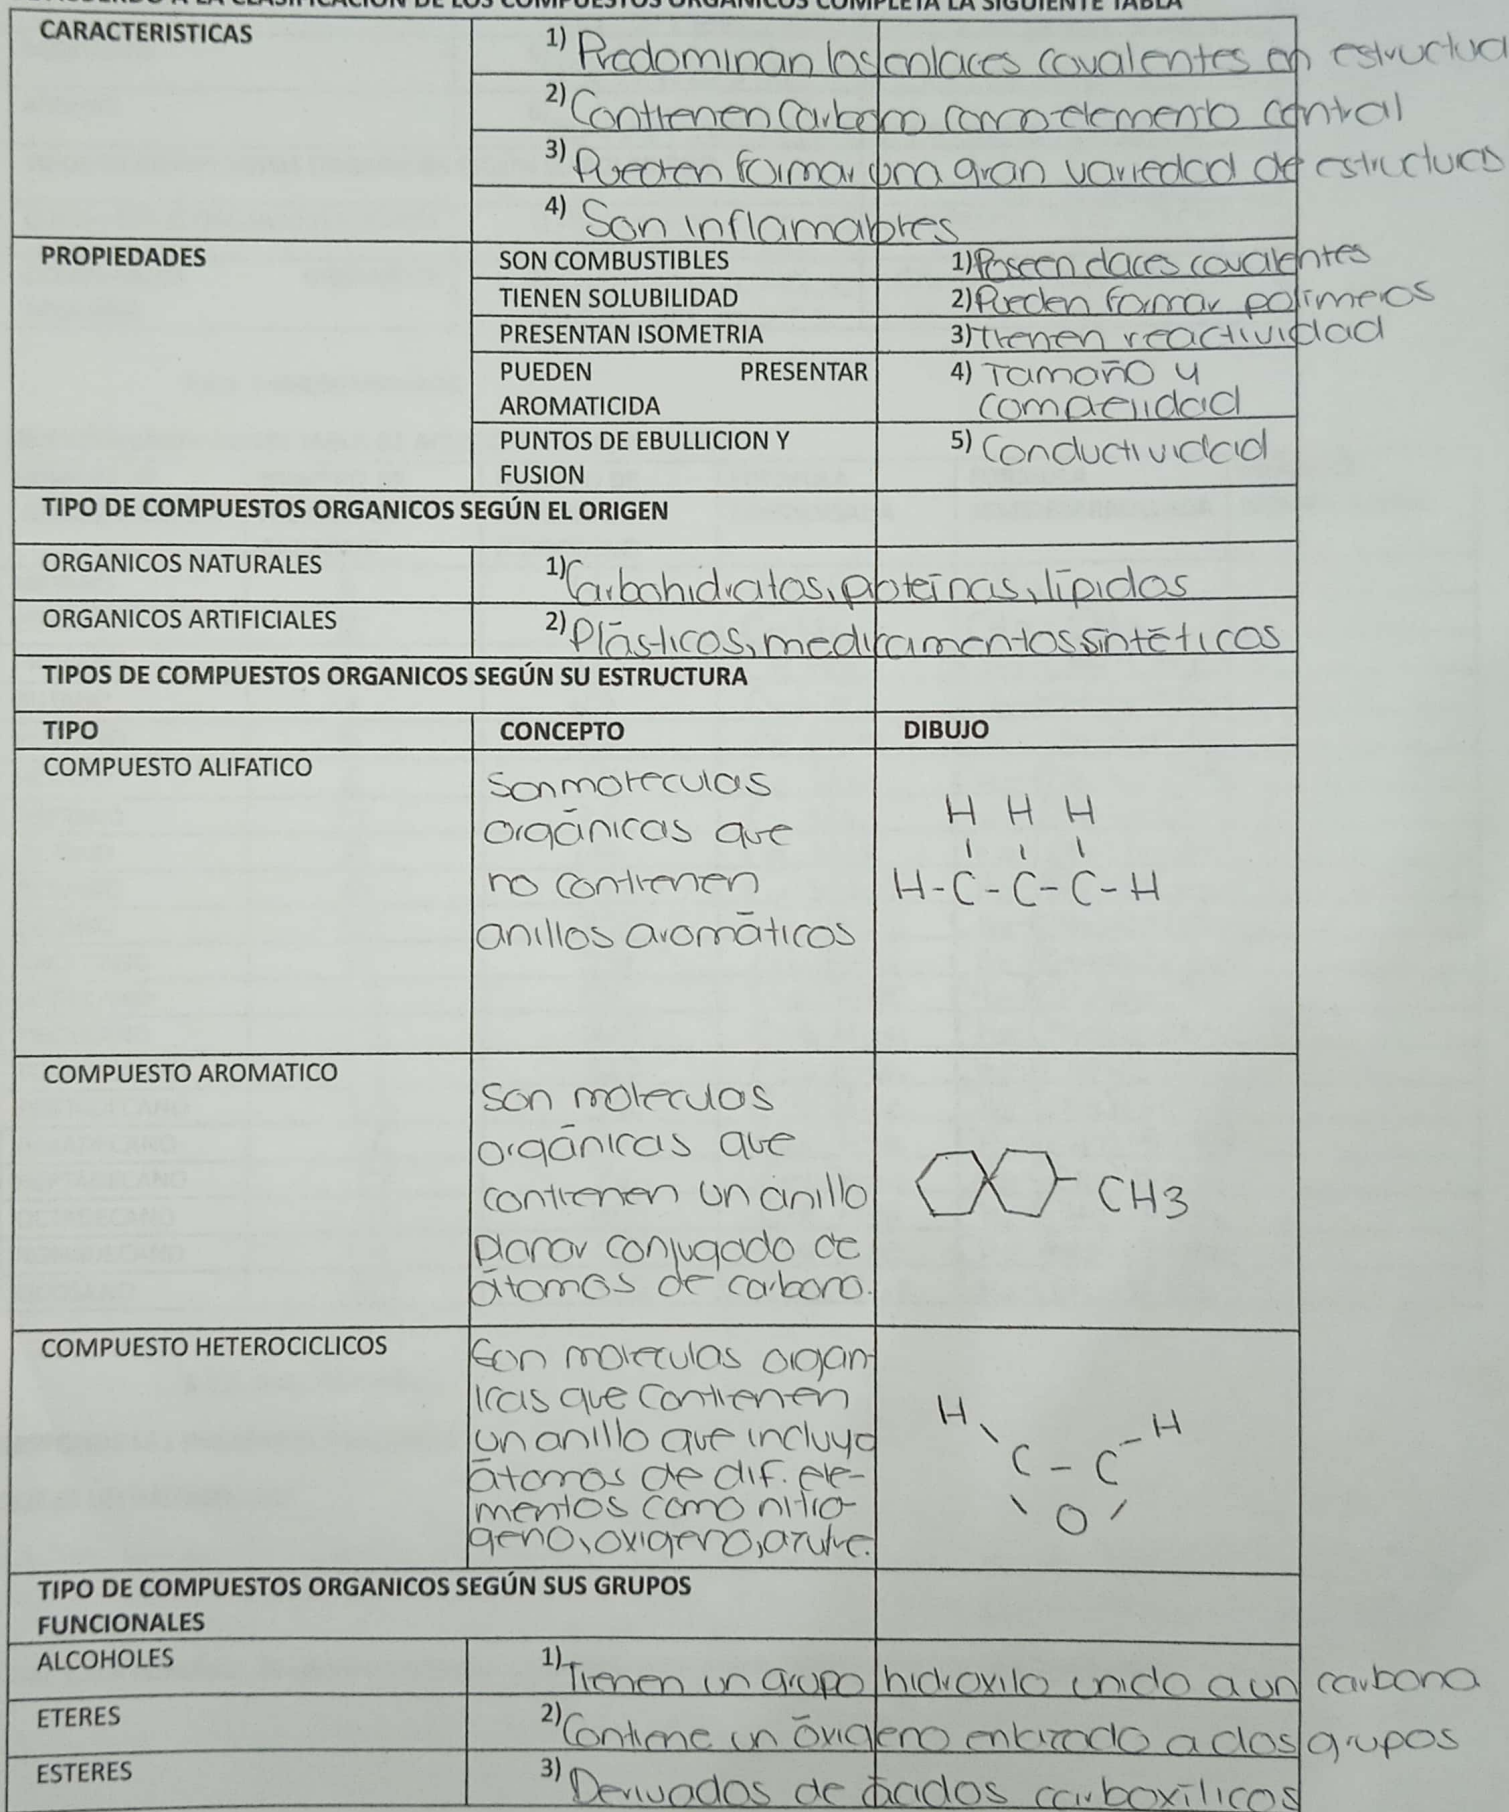 CARACTERISTICAS
1) Predominan los enlaces covalentes en estructua
2) Contienen Carbono como elemento central
3) Pueden formar una gran variedad de estructuras
4) Son inflamables
PROPIEDADES
SON COMBUSTIBLES
1) Poseen elaces covalentes
TIENEN SOLUBILIDAD
2) Pueden formar polimeros
PRESENTAN ISOMETRIA
3) Tienen reactividad
PUEDEN PRESENTAR
AROMATICIDA
4) Tamaño y
complejidad
PUNTOS DE EBULLICION Y
FUSION
5) Conductividad
TIPO DE COMPUESTOS ORGANICOS SEGÚN EL ORIGEN
ORGANICOS NATURALES
1) Carbohidratos, proteínas, lípidos
ORGANICOS ARTIFICIALES
2) Plásticos, medicamentos sintéticos
TIPOS DE COMPUESTOS ORGANICOS SEGÚN SU ESTRUCTURA
TIPO
CONCEPTO
DIBUJO
COMPUESTO ALIFATICO
Son moleculas
orgánicas que
no contienen
anillos aromáticos
H H H
H-C-C-C-H
COMPUESTO AROMATICO
Son moleculas
orgánicas que
contienen un anillo
planar conjugado de
átomos de carbono.
- CH3
COMPUESTO HETEROCICLICOS
Son moleculas organ-
icas que contienen
un anillo que incluya
átomos de dif. ele-
mentos como nitro-
geno, oxigeno, azufre.
H H
C - C
O
TIPO DE COMPUESTOS ORGANICOS SEGÚN SUS GRUPOS
FUNCIONALES
ALCOHOLES
1) Tienen un grupo hidroxilo unido a un carbono
ETERES
2) Contiene un óxigeno enlazado a dos grupos
ESTERES
3) Derivados de ácidos carboxílicos